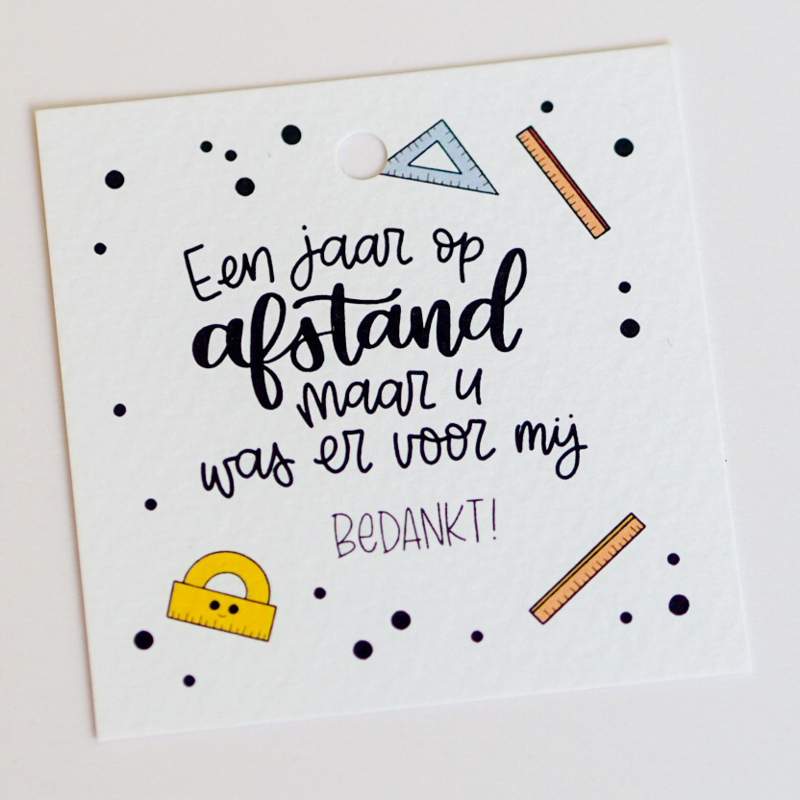 Een jaar op
afstand
maar u
was er voor mij
BEDANKT!